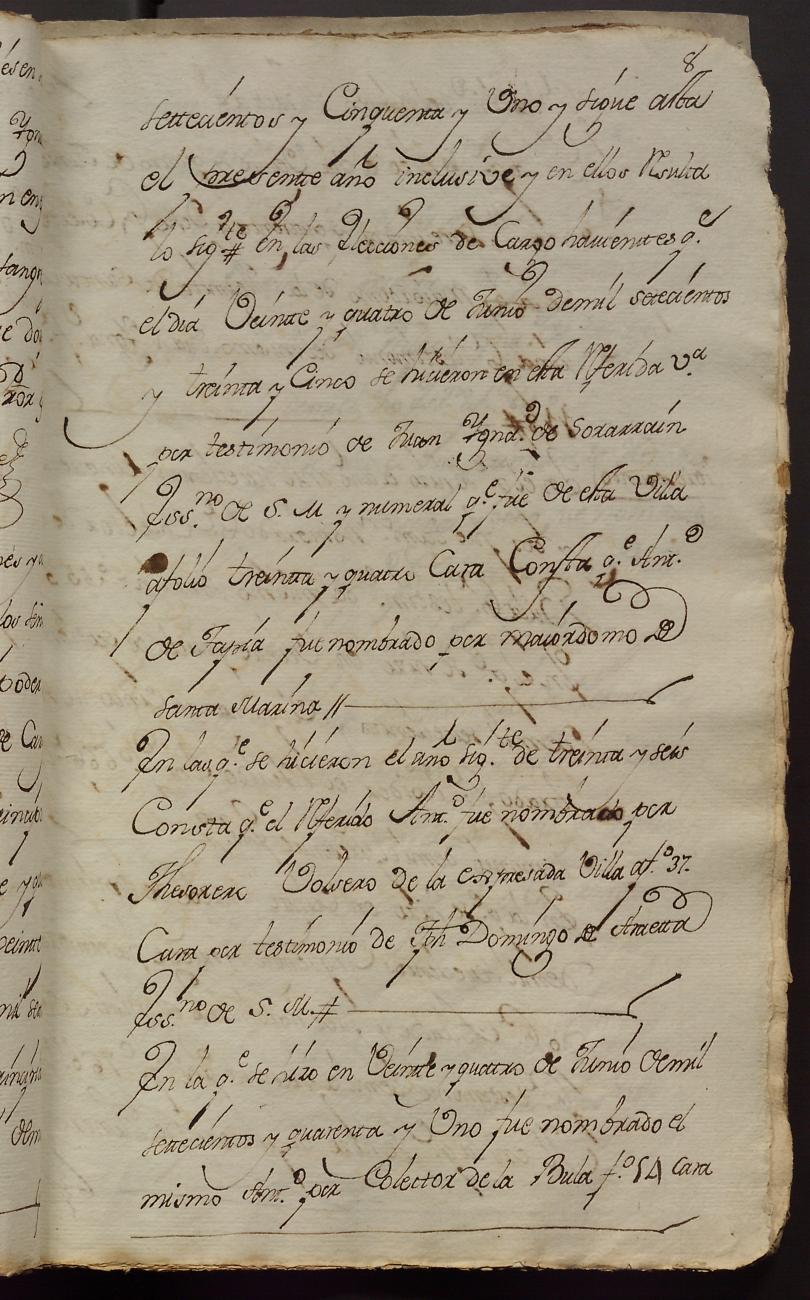 8
settecientos y Cinquenta y Uno y sigue asta
el presente año inclusive y en ellos Resulta
lo sig.te en las Elecciones de Cargo havientes q.e
el dia Veinte y quatro de Junio demil setecientos
y treinta y Cinco se hicieron en esta Referida V.a
por testimonio de Juan Ygna.o de Sorarrain
Ess.no de S. M y numeral q.e fue de esta Villa
afolio treinta y quatro Cara Consta q.e Ant.o
de fue nombrado por maiordomo de
Santa Marina //
En las q.e se hicieron el año sig.te de treinta y seis
Consta q.e el Referido Ant.o fue nombrado por
Thesorero Volsero de la expresada Villa af.o 37.
Cara por testimonio de Domingo de
Ess.no de S. M.
En la q.e se hizo en Veinte y quatro de Junio demil
settecientos y quarenta y Uno fue nombrado el
mismo Ant.o por Colector de la Bula f.o 54 Cara